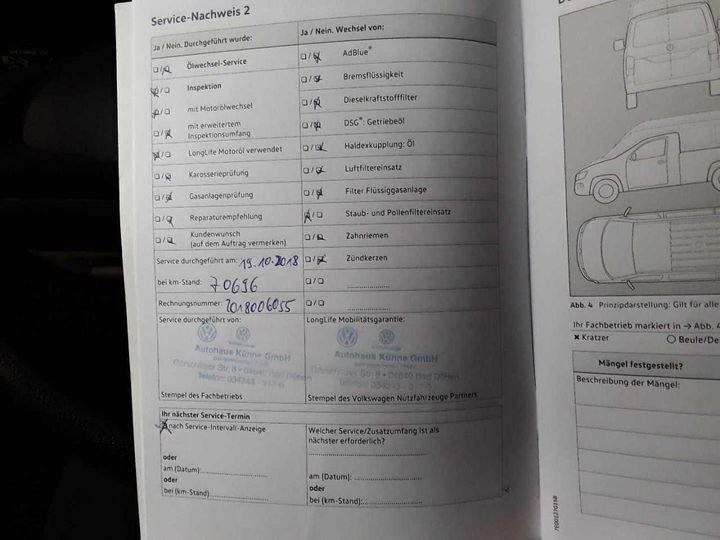 Service-Nachweis 2
Ja / Nein. Durchgeführt wurde:
Ja / Nein. Wechsel von:
Ölwechsel-Service
AdBlue®
Inspektion
Bremsflüssigkeit
mit Motorölwechsel
Dieselkraftstofffilter
mit erweitertem
Inspektionsumfang
DSG®: Getriebeöl
LongLife Motoröl verwendet
Haldexkupplung: Öl
Karosserieprüfung
Luftfiltereinsatz
Gasanlagenprüfung
Filter Flüssiggasanlage
Reparaturempfehlung
Staub- und Pollenfiltereinsatz
Kundenwunsch
(auf dem Auftrag vermerken)
Zahnriemen
Service durchgeführt am: 19.10.2018
Zündkerzen
bei km-Stand: 70696
Rechnungsnummer: 2018006055
Service durchgeführt von:
LongLife Mobilitätsgarantie:
Autohaus Kühne GmbH
Autohaus Kühne GmbH
Stempel des Fachbetriebs
Stempel des Volkswagen Nutzfahrzeuge Partners
Ihr nächster Service-Termin
nach Service-Intervall-Anzeige
Welcher Service/Zusatzumfang ist als
nächster erforderlich?
oder
am (Datum):
am (Datum):
oder
oder
bei (km-Stand)
bei (km-Stand):
Abb. 4 Prinzipdarstellung: Gilt für alle
Ihr Fachbetrieb markiert in → Abb. 4
Kratzer
Beule/De
Mängel festgestellt?
Beschreibung der Mängel: